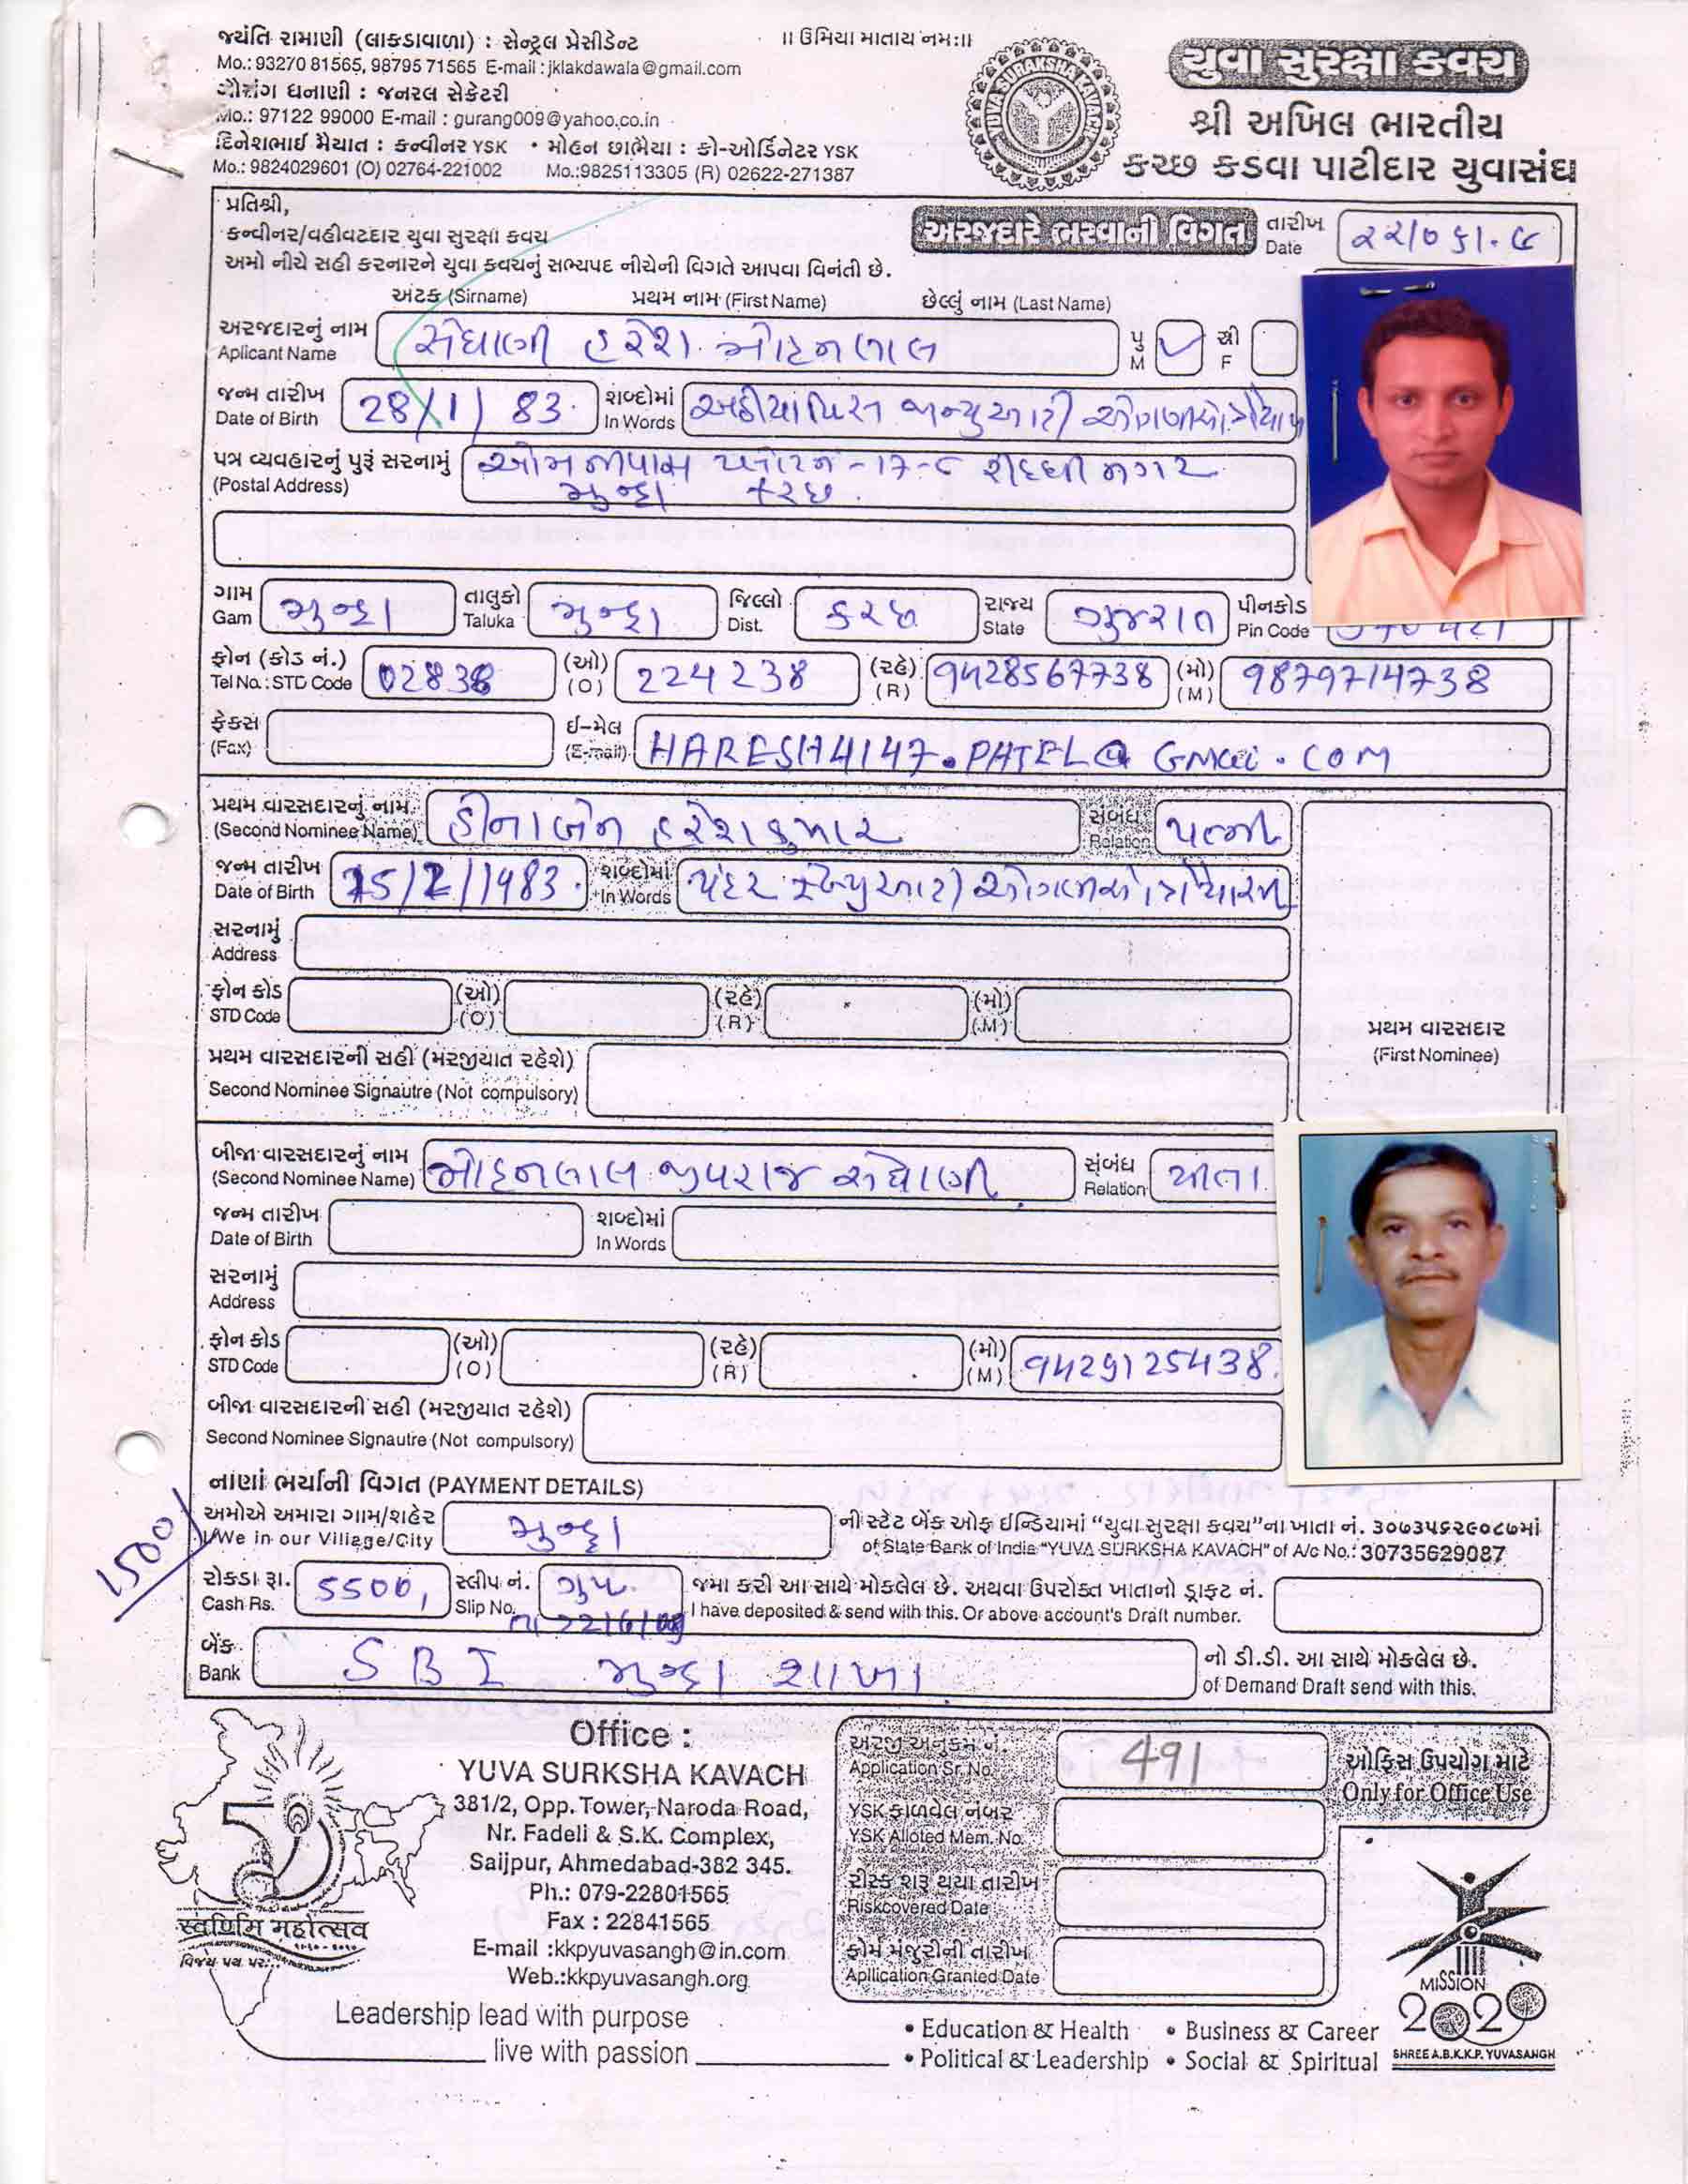 જયંતિ રામાણી (લાકડાવાળા) : સેન્ટ્રલ પ્રેસીડેન્ટ
Mo.: 93270 81565, 98795 71565 E-mail : jklakdawala@gmail.com
ગૌરાંગ ધનાણી : જનરલ સેક્રેટરી
Mo.: 97122 99000 E-mail : gurang009@yahoo.co.in
દિનેશભાઈ મૈયાત : કન્વીનર YSK • મોહન છાભૈયા : કો-ઓર્ડિનેટર YSK
Mo.: 9824029601 (O) 02764-221002 Mo.:9825113305 (R) 02622-271387
।। ઉમિયા માતાય નમ:।।
YUVA SURAKSHA KAVACH
યુવા સુરક્ષા કવચ
શ્રી અખિલ ભારતીય
કચ્છ કડવા પાટીદાર યુવાસંઘ
પ્રતિશ્રી,
કન્વીનર/વહીવટદાર યુવા સુરક્ષા કવચ
અમો નીચે સહી કરનારને યુવા કવચનું સભ્યપદ નીચેની વિગતે આપવા વિનંતી છે.
અરજદારે ભરવાની વિગત
તારીખ
Date
અટક (Sirname) પ્રથમ નામ (First Name) છેલ્લું નામ (Last Name)
અરજદારનું નામ
Aplicant Name
સેંઘાણી હરેશ મોહનલાલ
પુ M સ્ત્રી F
જન્મ તારીખ
Date of Birth
28/1/83.
શબ્દોમાં
In Words
પત્ર વ્યવહારનું પુરૂં સરનામું
(Postal Address)
મુન્દ્રા કચ્છ.
ગામ
Gam
મુન્દ્રા
તાલુકો
Taluka
મુન્દ્રા
જિલ્લો
Dist.
કચ્છ
રાજ્ય
State
ગુજરાત
પીનકોડ
Pin Code
ફોન (કોડ નં.)
Tel No.: STD Code
02838
(ઓ)
(O)
224238
(રહે)
(R)
9428567738
(મો)
(M)
9879714738
ફેકસ
(Fax)
ઈ-મેલ
(E-mail)
HARESH4147.PATEL@GMail.COM
પ્રથમ વારસદારનું નામ
(Second Nominee Name)
હીનાબેન હરેશકુમાર
સંબંધ
Relation
પત્ની
જન્મ તારીખ
Date of Birth
15/2/1983.
શબ્દોમાં
In Words
સરનામું
Address
ફોન કોડ
STD Code
(ઓ)
(O)
(રહે)
(R)
(મો)
(M)
પ્રથમ વારસદારની સહી (મરજીયાત રહેશે)
Second Nominee Signautre (Not compulsory)
પ્રથમ વારસદાર
(First Nominee)
બીજા વારસદારનું નામ
(Second Nominee Name)
મોહનલાલ જીવરાજ સેંઘાણી
સંબંધ
Relation
પીતા
જન્મ તારીખ
Date of Birth
શબ્દોમાં
In Words
સરનામું
Address
ફોન કોડ
STD Code
(ઓ)
(O)
(રહે)
(R)
(મો)
(M)
9429125438.
બીજા વારસદારની સહી (મરજીયાત રહેશે)
Second Nominee Signautre (Not compulsory)
નાણાં ભર્યાની વિગત (PAYMENT DETAILS)
અમોએ અમારા ગામ/શહેર
I/We in our Village/City
મુન્દ્રા
ની સ્ટેટ બેંક ઓફ ઈન્ડિયામાં “યુવા સુરક્ષા કવચ”ના ખાતા નં. ૩૦૭૩૫૬૨૯૦૮૭માં
of State Bank of India “YUVA SURKSHA KAVACH” of A/c No.: 30735629087
1500/
રોકડા રૂા.
Cash Rs.
5500,
સ્લીપ નં.
Slip No.
તા 22/6/09
જમા કરી આ સાથે મોકલેલ છે. અથવા ઉપરોક્ત ખાતાનો ડ્રાફટ નં.
I have deposited & send with this. Or above account's Draft number.
બેંક
Bank
SBI મુન્દ્રા શાખા
નો ડી.ડી. આ સાથે મોકલેલ છે.
of Demand Draft send with this.
Office :
YUVA SURKSHA KAVACH
381/2, Opp. Tower, Naroda Road,
Nr. Fadeli & S.K. Complex,
Saijpur, Ahmedabad-382 345.
Ph.: 079-22801565
Fax : 22841565
E-mail :kkpyuvasangh@in.com
Web.:kkpyuvasangh.org
50
स्वर्णिम महोत्सव
વિજય પથ પર...
Leadership lead with purpose
live with passion
અરજી અનુક્રમ નં.
Application Sr. No.
491
YSK ફાળવેલ નંબર
YSK Alloted Mem. No.
રીસ્ક શરૂ થયા તારીખ
Riskcovered Date
ફોર્મ મંજુરીની તારીખ
Apllication Granted Date
ઓફિસ ઉપયોગ માટે
Only for Office Use
• Education & Health • Business & Career
• Political & Leadership • Social & Spiritual
MISSION
2020
SHREE A.B.K.K.P. YUVASANGH